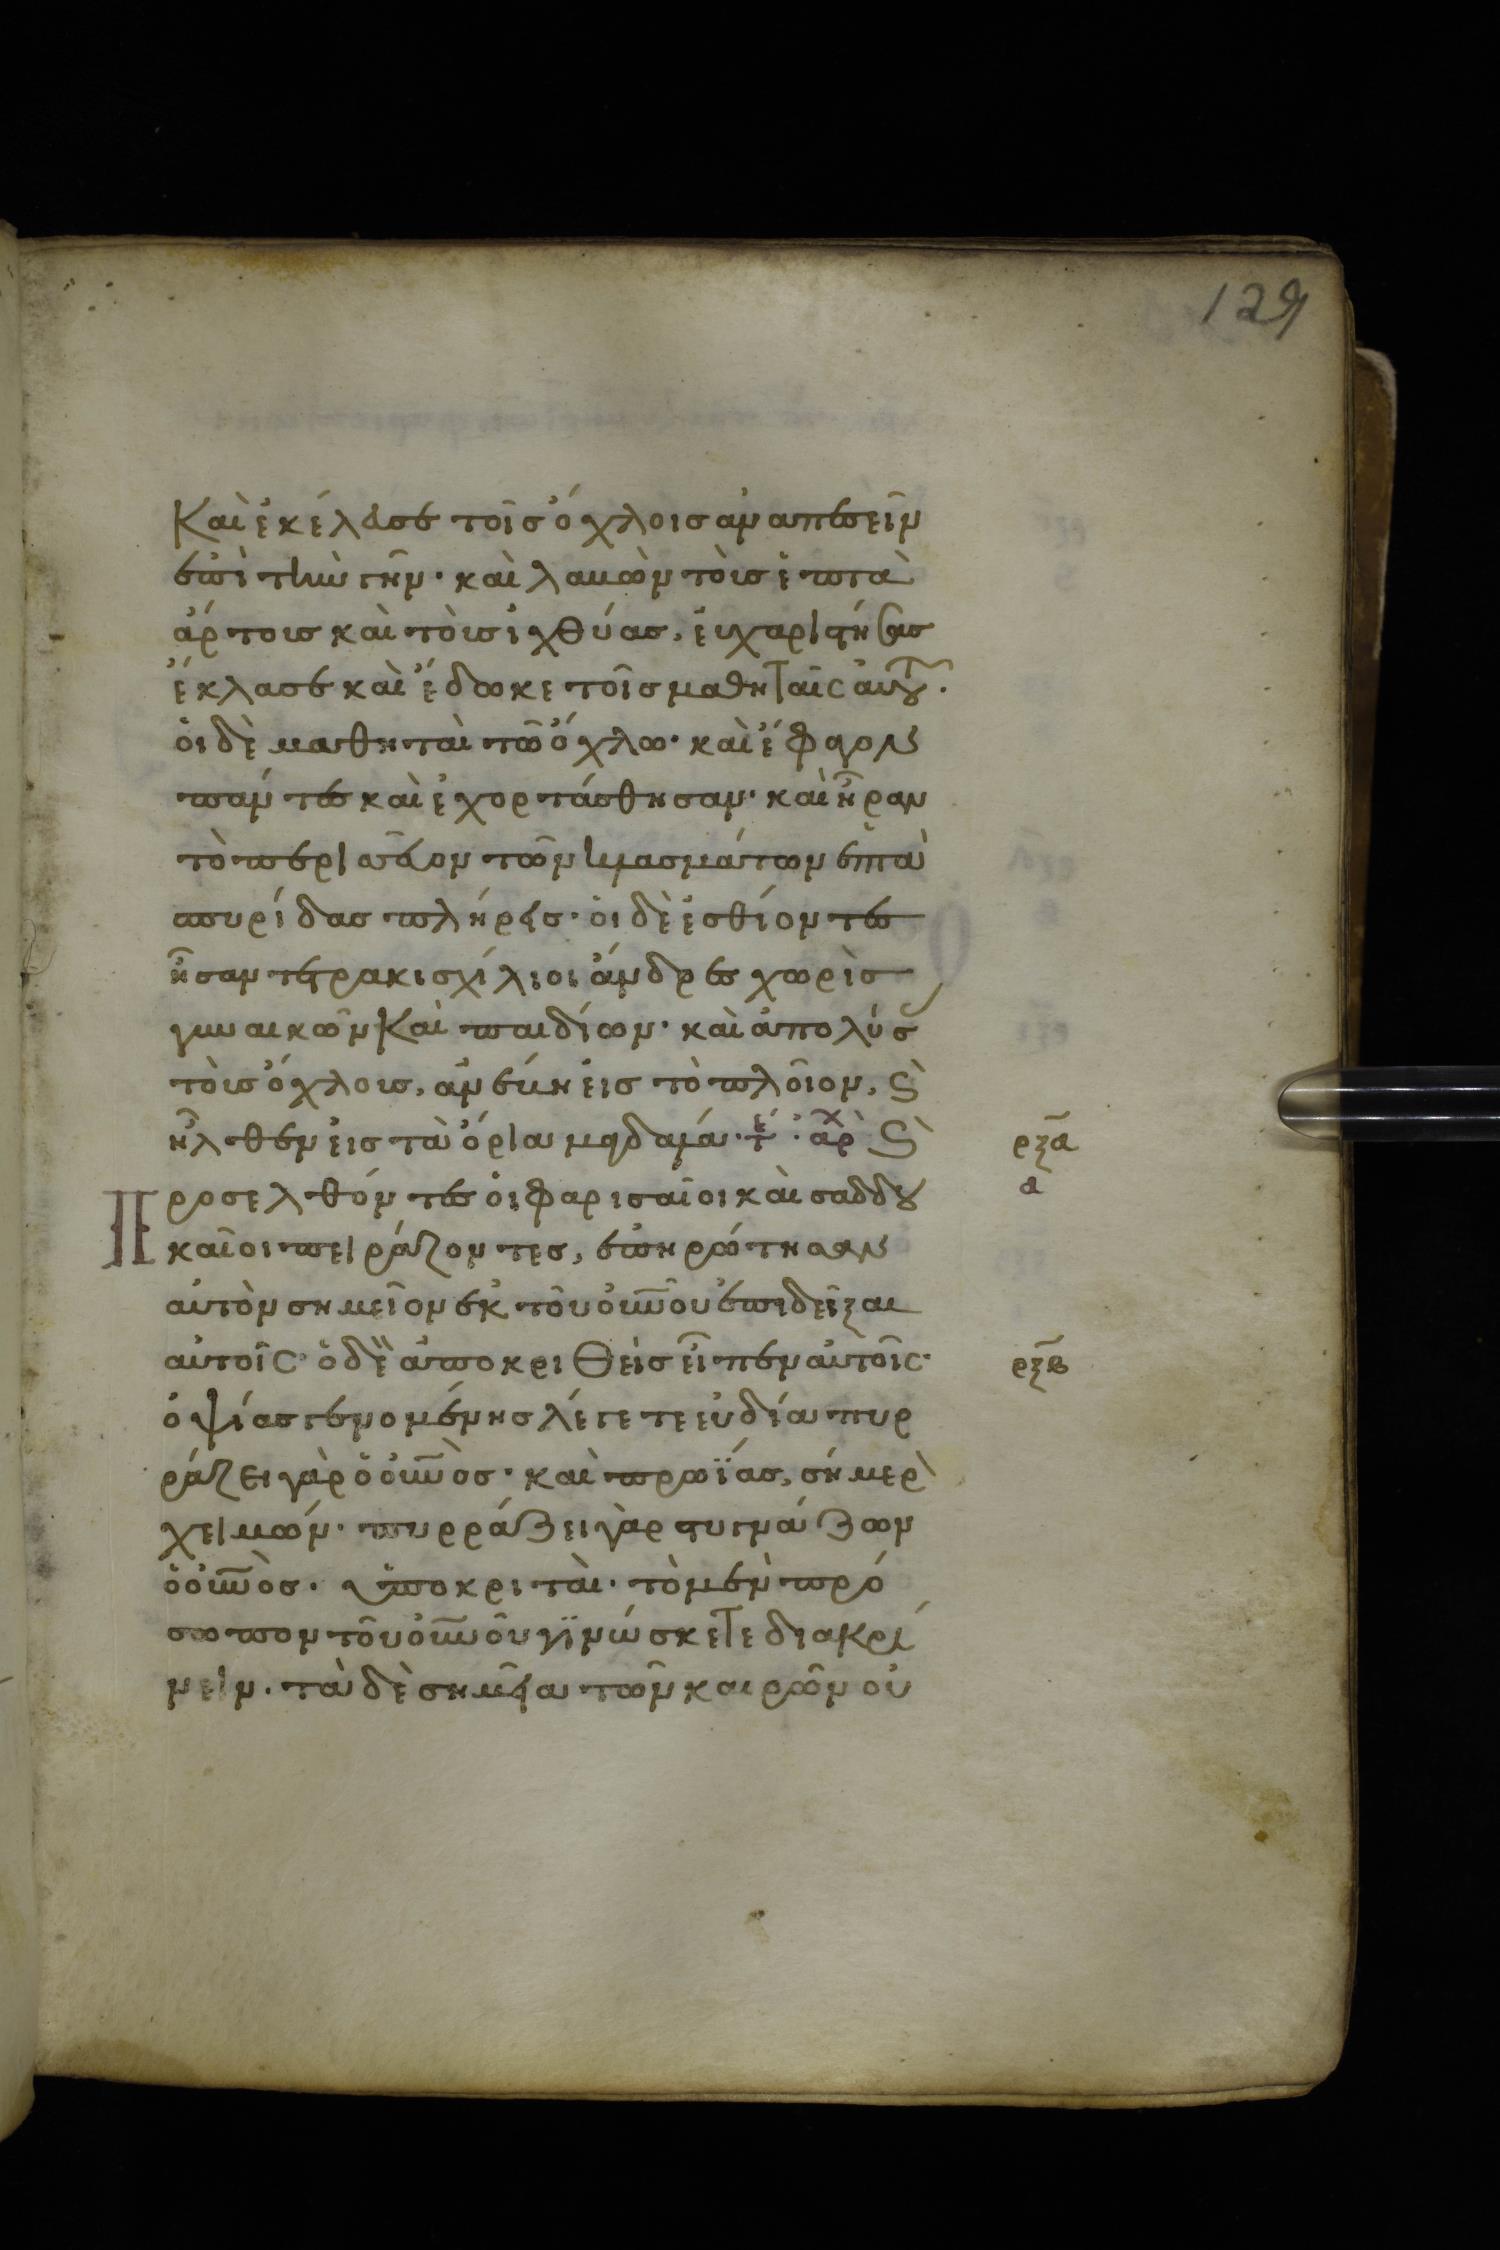 129
Καὶ ἐκέλευσε τοῖς ὄχλοις ἀναπεσεῖν
ἐπὶ τὴν γῆν· καὶ λαβὼν τοὺς ἑπτὰ
ἄρτους καὶ τοὺς ἰχθύας, εὐχαριστήσας
ἔκλασε καὶ ἔδωκε τοῖς μαθηταῖς αὐτοῦ.
οἱ δὲ μαθηταὶ τῶ ὄχλω· καὶ ἔφαγον
πάντες καὶ ἐχορτάσθησαν· καὶ ἦραν
τὸ περισσεῦον τῶν κλασμάτων ἑπτὰ
σπυρίδας πλήρεις· οἱ δὲ ἐσθίοντες
ἦσαν τετρακισχίλιοι ἄνδρες χωρὶς
γυναικῶν καὶ παιδίων· καὶ ἀπολύσας
τοὺς ὄχλους, ἀνέβη εἰς τὸ πλοῖον, Ϛ̀
ἦλθεν εἰς τὰ ὅρια μαγδαλά· Ϛ̀ ρξα
α
Προσελθόντες οἱ φαρισαῖοι καὶ σαδδου
καῖοι πειράζοντες, ἐπηρώτησαν
αὐτὸν σημεῖον ἐκ τοῦ οὐνοῦ ἐπιδεῖξαι
αὐτοῖς· ὁ δὲ ἀποκριθεὶς εἶπεν αὐτοῖς· ρξβ
ὀψίας γενομένης λέγετε εὐδία πυρ
ράζει γὰρ ὁ οὐνὸς· καὶ πρωΐας, σήμερὸν
χειμών· πυρράζει γὰρ στυγνάζων
ὁ οὐνὸς· ὑποκριταὶ· τὸ μὲν πρό
σωπον τοῦ οὐνοῦ γινώσκετε διακρί
νειν. τὰ δὲ σημεῖα τῶν καιρῶν οὐ